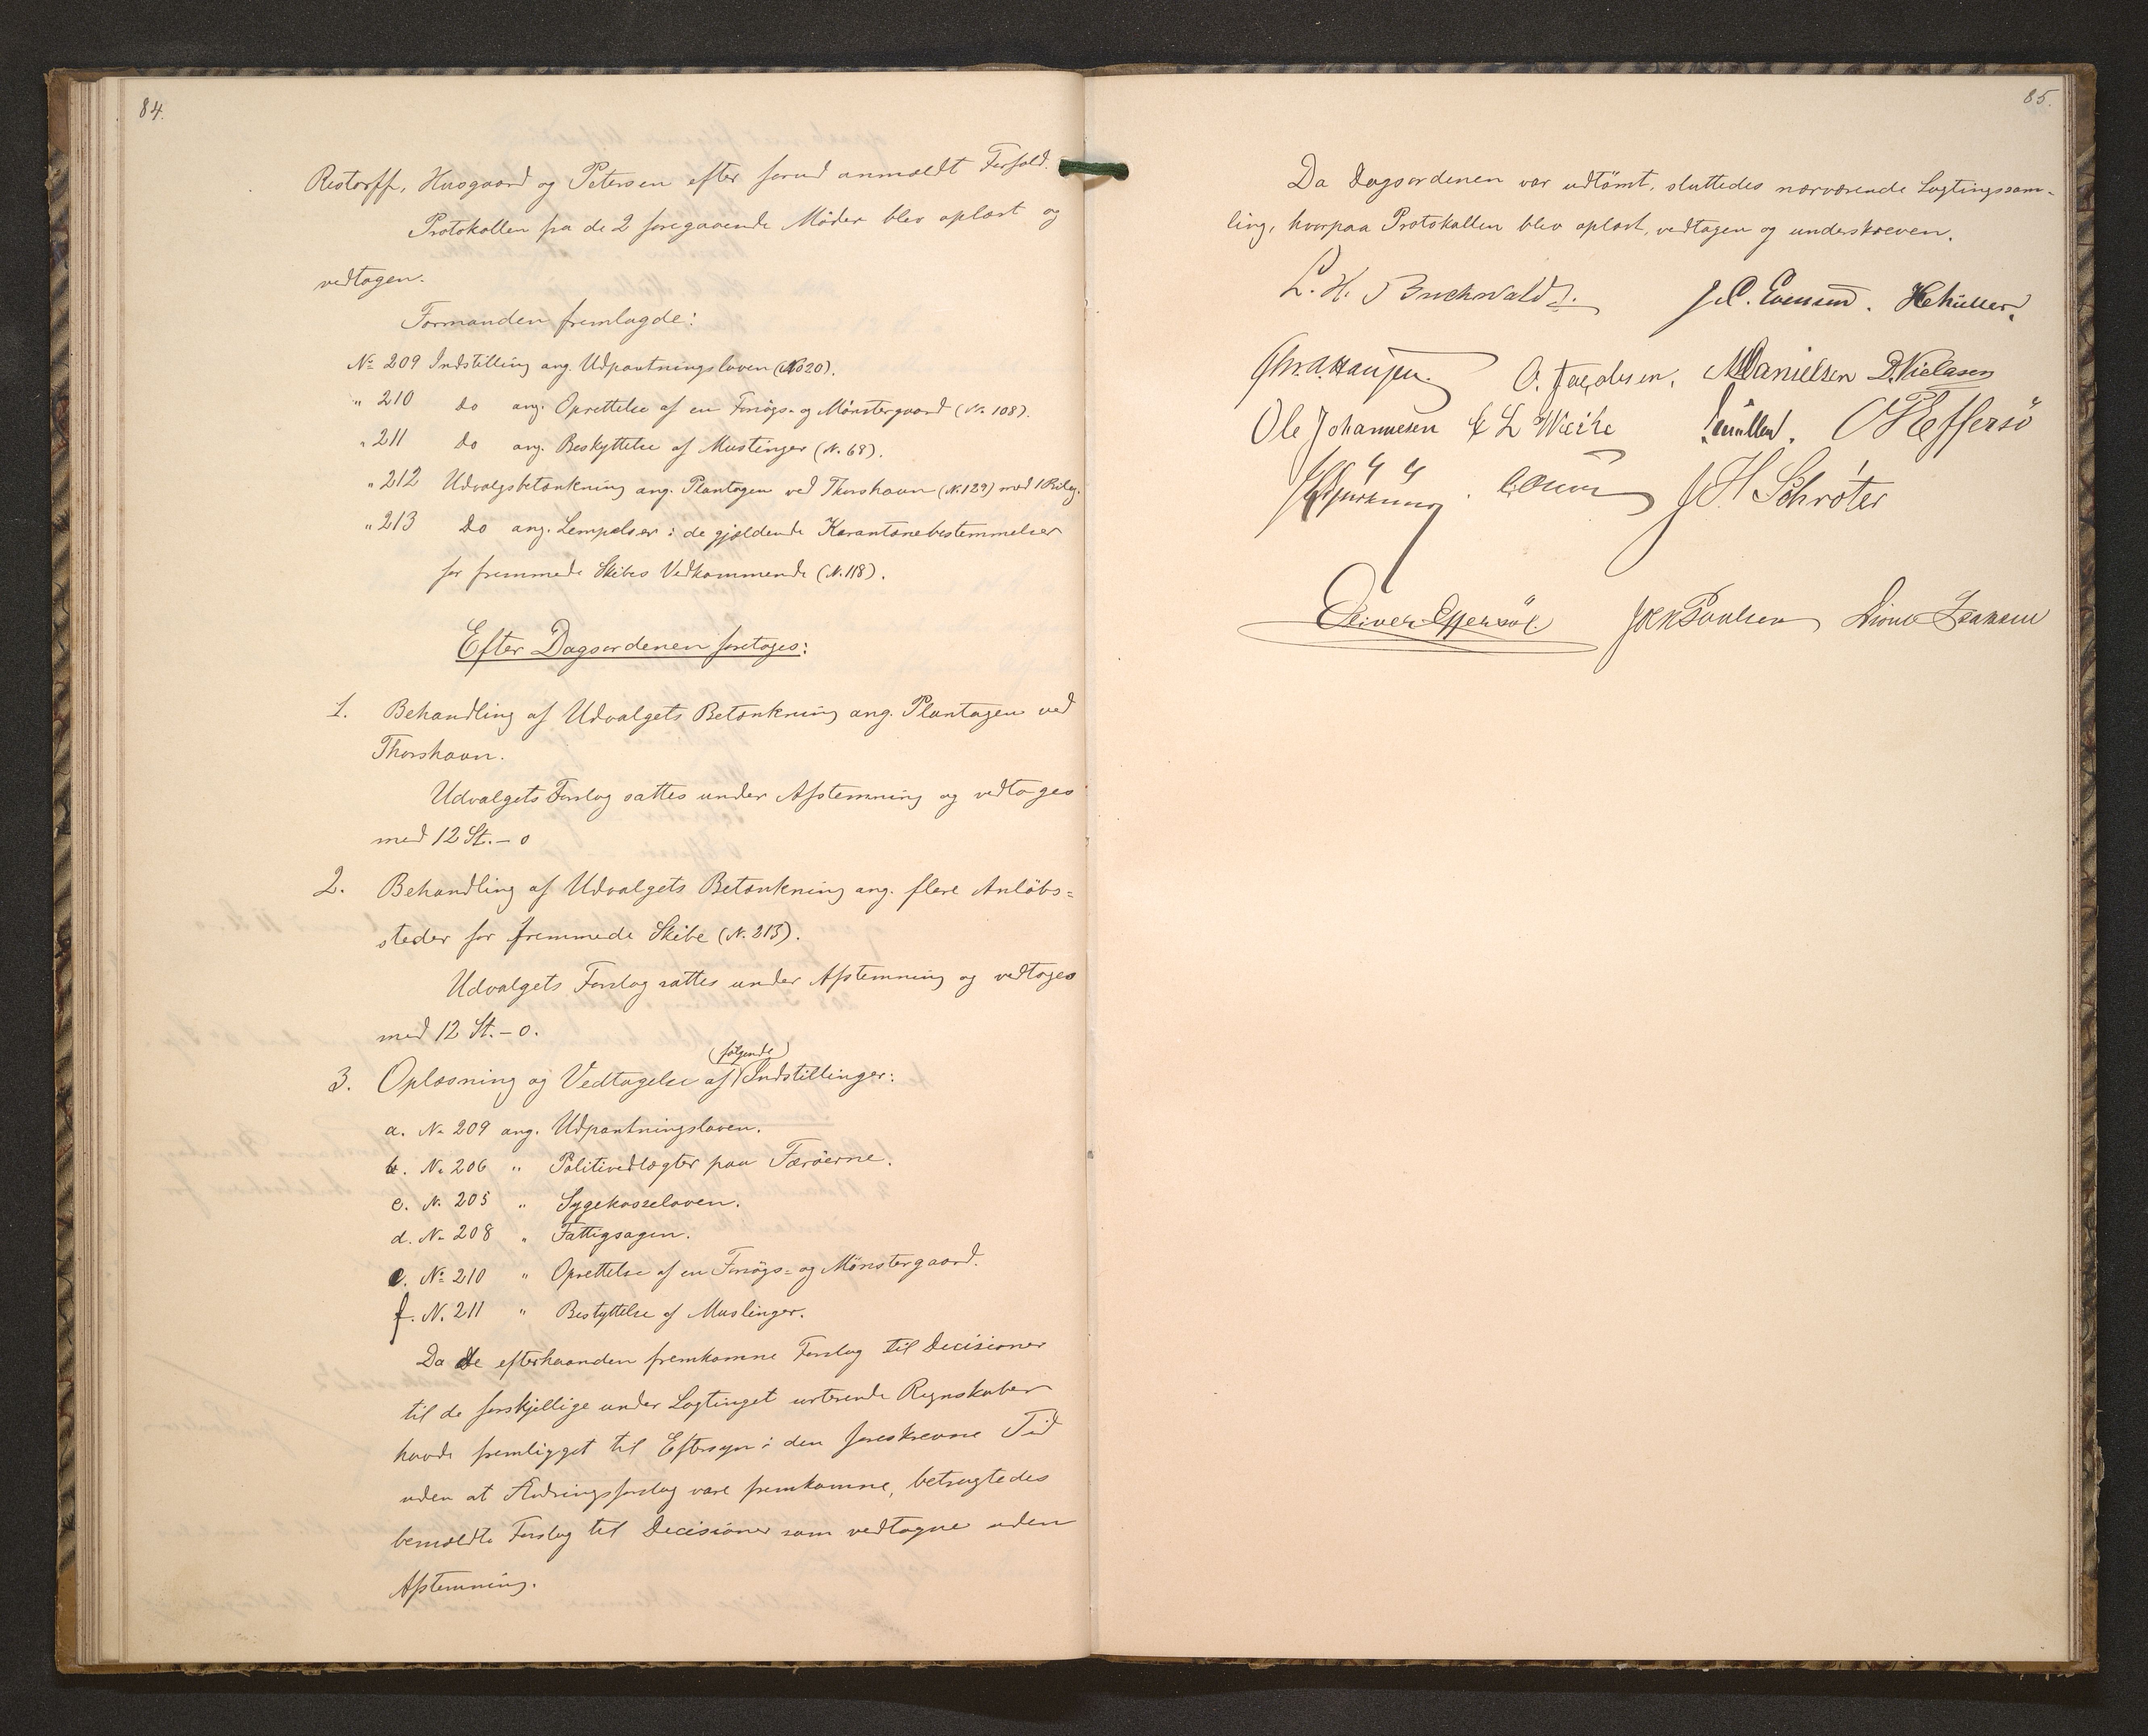 84.
Restorff, Husgaard og Petersen efter forud anmeldt Forfald.
Protokollen fra de 2 foregaaende Møder blev oplæst og
vedtagen.
Formanden fremlagde:
No 209 Indstilling ang. Udpantningsloven (No 20).
" 210 Do ang. Oprettelse af en Forsøgs- og Mønstergaard (N. 108).
" 211 Do ang. Beskyttelse af Muslinger (N. 68).
" 212 Udvalgsbetænkning ang. Plantagen ved Thorshavn (N. 129) med 1 Bilag.
" 213 Do ang. Lempelser i de gjældende Karantænebestemmelser
for fremmede Skibes Vedkommende (N. 118).
Efter Dagsordenen foretoges:
1. Behandling af Udvalgets Betænkning ang. Plantagen ved
Thorshavn.
Udvalgets Forslag sattes under Afstemning og vedtoges
med 12 St. – 0
2. Behandling af Udvalgets Betænkning ang. flere Anløbs=
steder for fremmede Skibe (N. 213).
Udvalgets Forslag sattes under Afstemning og vedtoges
med 12 St. – 0.
3. Oplæsning og Vedtagelse af (følgende) Indstillinger:
a. No 209 ang. Udpantningsloven.
b. No 206 " Politivedtægter paa Færøerne.
c. N. 205 " Sygekasseloven.
d. No 208 " Fattigsagen.
e. No 210 " Oprettelse af en Forsøgs= og Mønstergaard.
f. N. 211 " Beskyttelse af Muslinger.
Da de efterhaanden fremkomne Forslag til Decisioner
til de forskjellige under Lagtinget sorterende Regnskaber
havde fremligget til Eftersyn i den foreskrevne Tid
uden at Ændringsforslag vare fremkomne, betragtedes
bemældte Forslag til Decisioner som vedtagne uden
Afstemning.
85.
Da Dagsordenen var udtømt, sluttedes nærværende Lagtingssam-
ling, hvorpaa Protokollen blev oplæst, vedtagen og underskreven.
L. H. Buchwaldt. J. C. Evensen. HCMüller.
O. Jacobsen. MDanielsen D. Nielasen
Ole Johannesen E L Weihe OPEffersö
J. H. Schröter
Oliver Effersöe. Joen Poulsen Dion Isaksen